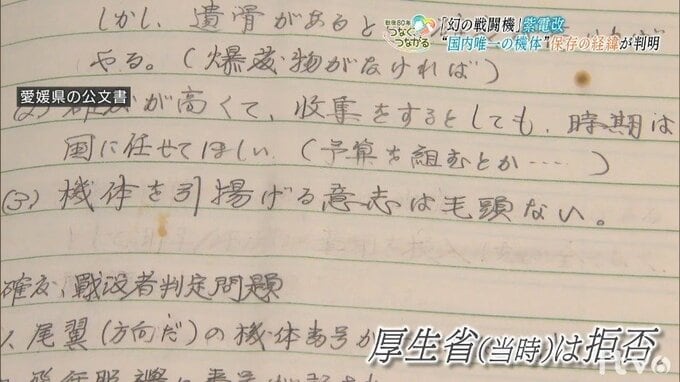 戦後80年
つなぐ、
つながる
「幻の戦闘機」紫電改
“国内唯一の機体”保存の経緯が判明
愛媛県の公文書
しかし、遺骨があると
やる。(爆発物がなければ)
が高くて、収集をするとしても、時期は
国に任せてほしい。(予算を組むとか……)
(3) 機体を引揚げる意志は毛頭ない。
確度、戦没者判定問題
1. 尾翼(方向だ)の機体番号が
厚生省(当時)は拒否
itv6